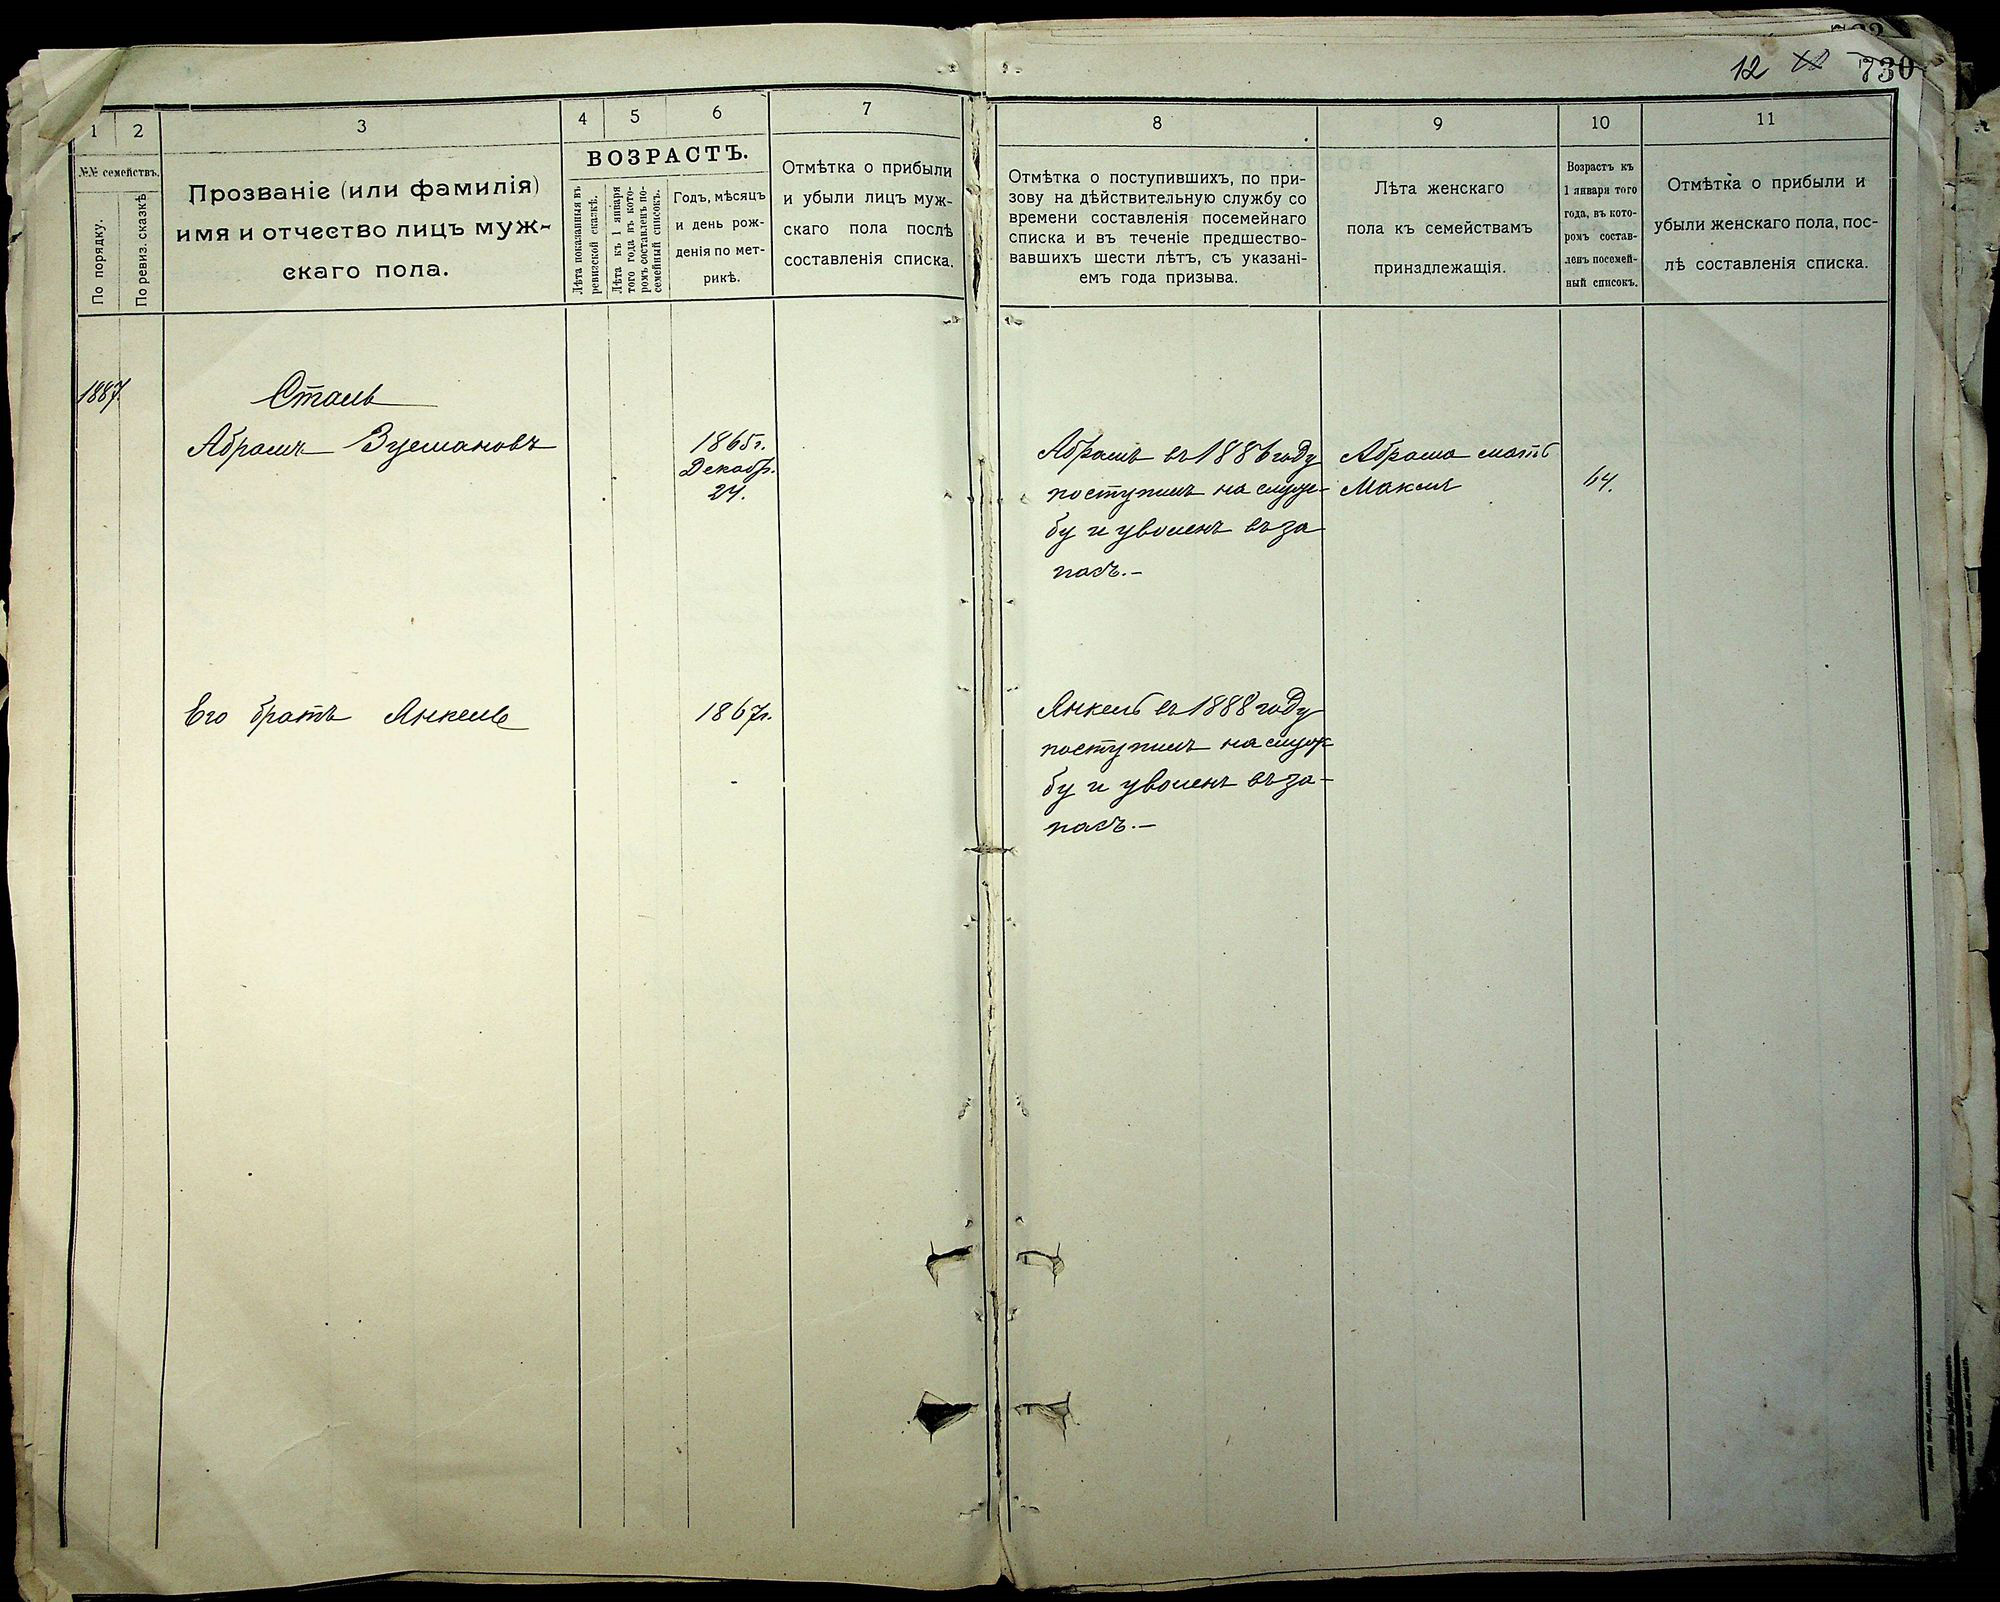 12 730
1
2
3
4
5
6
7
№№ семействъ.
По порядку.
По ревиз. сказкѣ
Прозваніе (или фамилія)
имя и отчество лицъ муж-
скаго пола.
ВОЗРАСТЪ.
Лѣта показанныя въ
ревизской сказкѣ.
Лѣта къ 1 января
того года въ кото-
ромъ составленъ по-
семейный списокъ.
Годъ, мѣсяцъ
и день рож-
денія по мет-
рикѣ.
Отмѣтка о прибыли
и убыли лицъ муж-
скаго пола послѣ
составленія списка.
1887.
Сталь
Абрамъ Зусмановъ
1865г.
Декабр.
24.
Его братъ Янкель
1867г.
8
9
10
11
Отмѣтка о поступившихъ, по при-
зову на дѣйствительную службу со
времени составленія посемейнаго
списка и въ теченіе предшество-
вавшихъ шести лѣтъ, съ указані-
емъ года призыва.
Лѣта женскаго
пола къ семействамъ
принадлежащія.
Возрастъ къ
1 января того
года, въ кото-
ромъ состав-
ленъ посемей-
ный списокъ.
Отмѣтка о прибыли и
убыли женскаго пола, пос-
лѣ составленія списка.
Абрамъ въ 1886 году
поступилъ на служ-
бу и уволенъ въ за
пасъ.-
Абрама мать
64.
Янкель въ 1888 году
поступилъ на служ
бу и уволенъ въ за-
пасъ.-